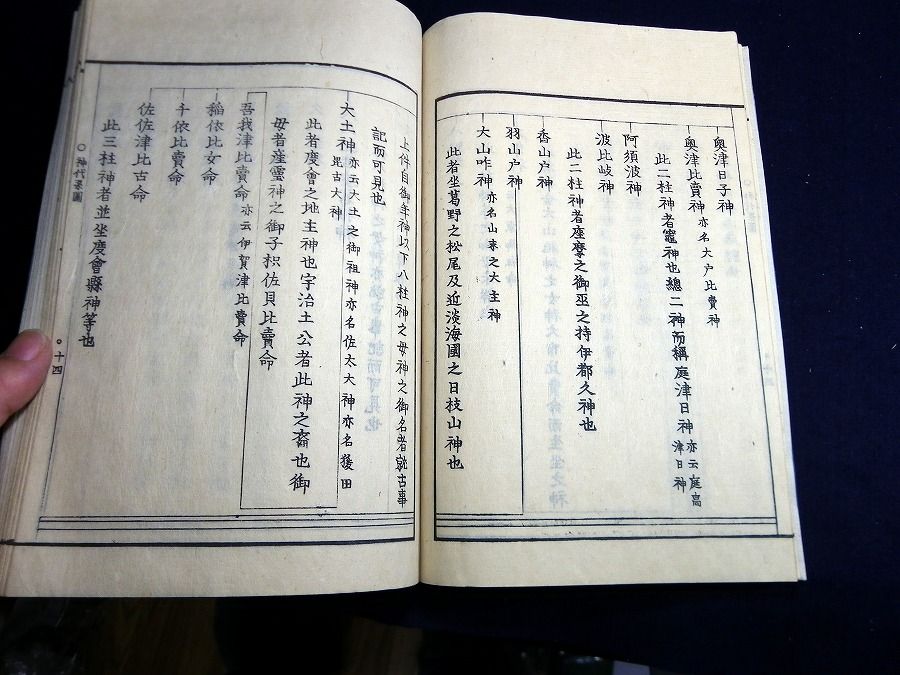 奧津日子神
奧津比賣神 亦名大戸比賣神
此二柱神者竈神也總二神而稱庭津日神 亦云庭高津日神
阿須波神
波比岐神
此二柱神者座摩之御巫之持伊都久神也
香山戸神
羽山戸神
大山咋神 亦名山末之大主神
此者坐葛野之松尾及近淡海國之日枝山神也
上件自御年神以下八柱神之母神之御名者就古事
記而可見也
大土神 亦云大土之御祖神亦名佐太大神亦名猨田毘古大神
此者度會之地主神也宇治土公者此神之裔也御
母者産靈神之御子枳佐貝比賣命
吾我津比賣命 亦云伊賀津比賣命
稲依比女命
千依比賣命
佐佐津比古命
此三柱神者並坐度會縣神等也
○神代系圖
○十四